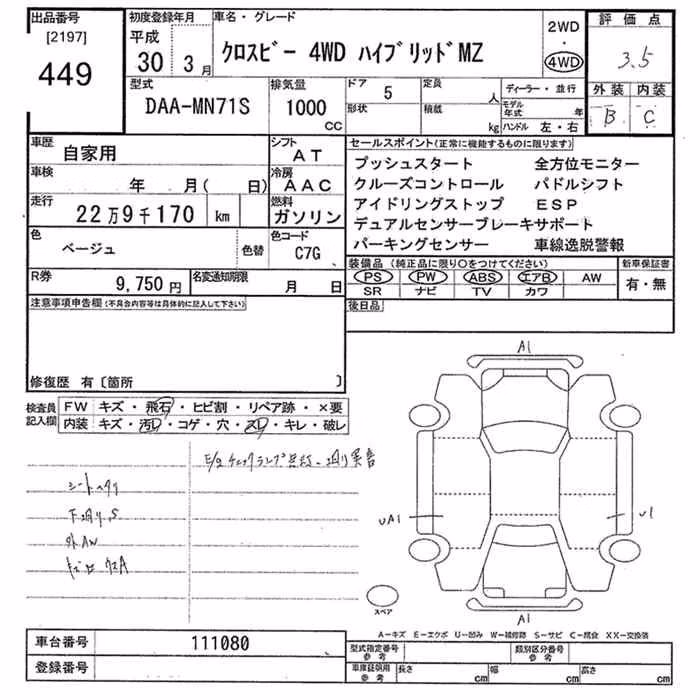 出品番号
[2197]
449
初度登録年月
平成
30 3月
車名・グレード
クロスビー 4WD ハイブリッドMZ
2WD
・
4WD
評価点
3.5
外装 内装
B C
型式
DAA-MN71S
排気量
1000
CC
ドア 5
形状
定員 人
積載 kg
ディーラー・並行
モデル年式 年
ハンドル 左・右
車歴
自家用
シフト
AT
車検
年 月( 日)
冷房
AAC
走行
22万9千170 km
燃料
ガソリン
色
ベージュ
色替
色コード
C7G
R券
9,750円
名変通知期限
月 日
セールスポイント(正常に機能するものに限ります)
プッシュスタート 全方位モニター
クルーズコントロール パドルシフト
アイドリングストップ ESP
デュアルセンサーブレーキサポート
パーキングセンサー 車線逸脱警報
装備品(純正品に限り○をつけてください)
新車保証書
PS PW ABS エアB AW
有・無
SR ナビ TV カワ
後日品
注意事項申告欄(不具合内容等は具体的に記入して下さい)
修復歴 有〔箇所 〕
検査員
記入欄
FW キズ・飛石・ヒビ割・リペア跡・×要
内装 キズ・汚レ・コゲ・穴・スレ・キレ・破レ
E/gチェックランプ点灯
シートヘタリ
下廻りS
外AW
A1
UA1
U1
A1
スペア
A-キズ E-エクボ U-凹み W-補修跡 S-サビ C-腐食 XX-交換済
車台番号
111080
登録番号
型式指定番号
参考
類別区分番号
参考
車庫証明用
参考
長さ cm
幅 cm
高さ cm